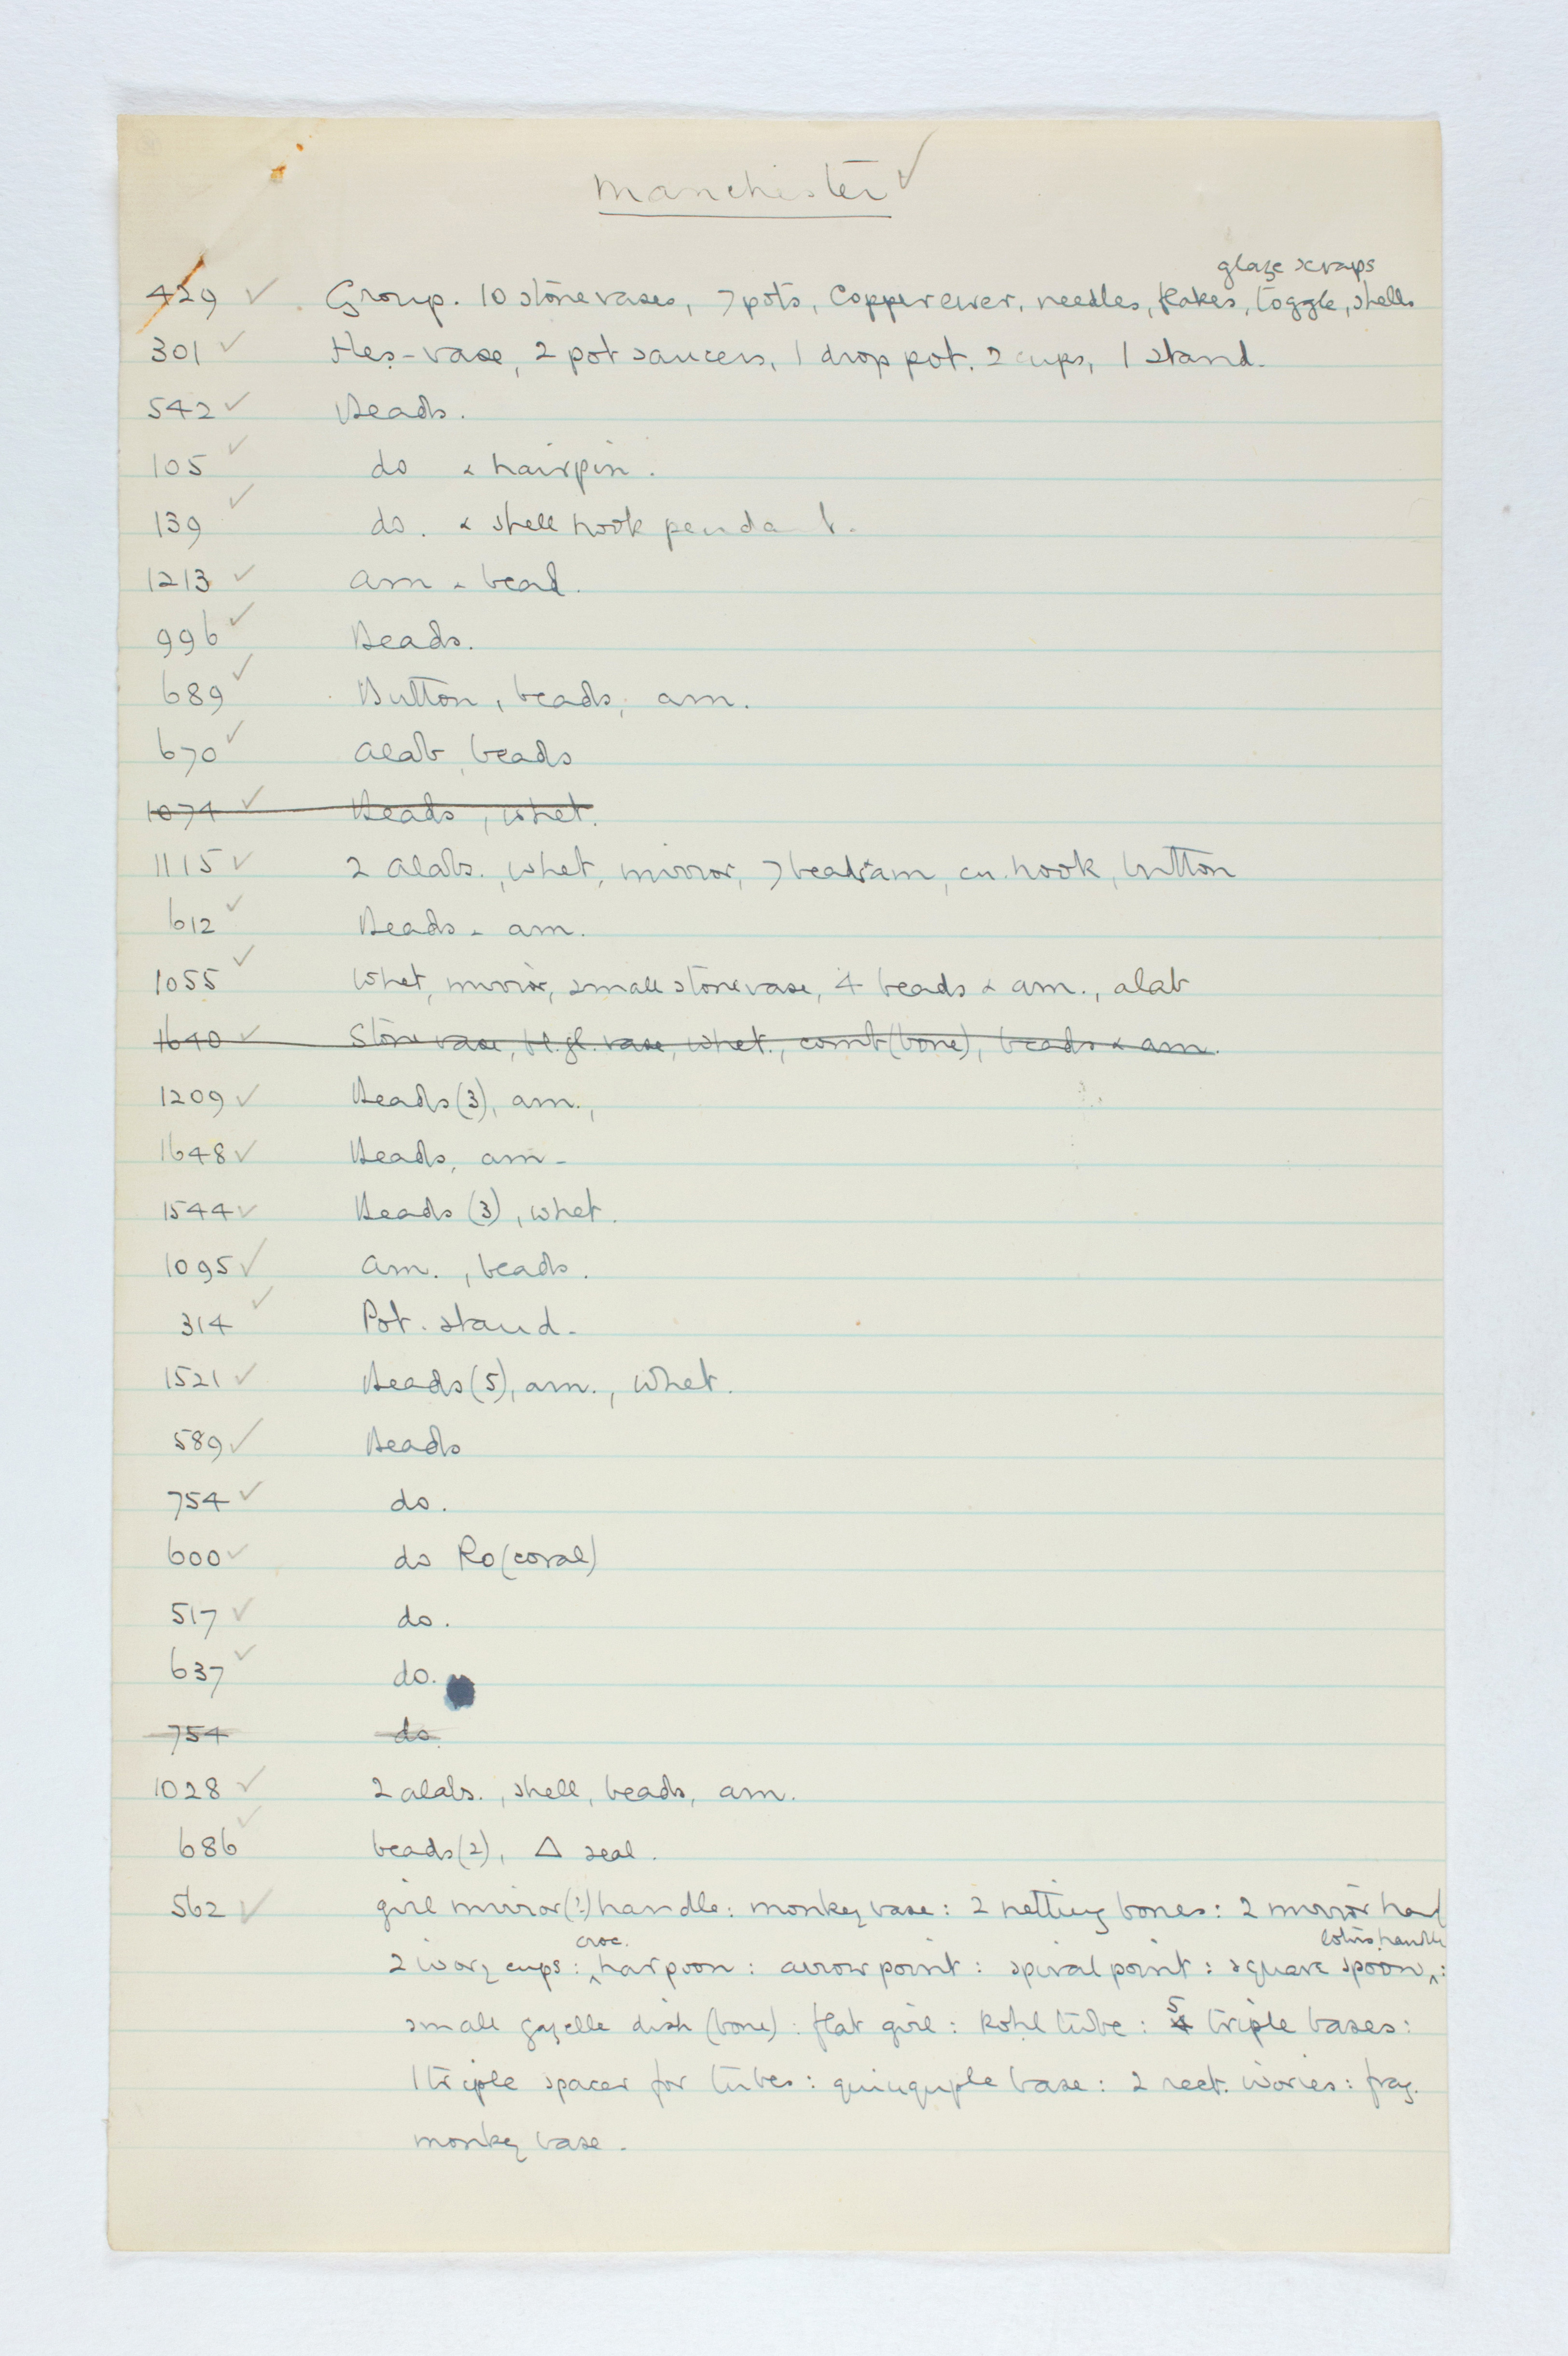 Manchester ✓
glaze scraps
429 ✓ Group. 10 stone vases, 7 pots, Copper ewer, needles, flakes, toggle, shells
301 ✓ Hes-vase, 2 pot saucers, 1 drop pot. 2 cups, 1 stand.
542 ✓ Beads.
105 ✓ do & hairpin.
139 ✓ do. & shell hook pendant.
1213 ✓ am & bead.
996 ✓ Beads.
689 ✓ Button, beads, am.
670 ✓ alab, beads
1074 ✓ Beads, whet.
1115 ✓ 2 alabs., whet, mirror, 7 bead & am, cu. hook, button
612 ✓ Beads & am.
1055 ✓ Whet, mirror, small stone vase, 4 beads & am., alab
1640 ✓ Stone vase, bl. gl. vase, whet., comb (bone), beads & am.
1209 ✓ Beads (3), am.,
1648 ✓ Beads, am.
1544 ✓ Beads (3), whet.
1095 ✓ am., beads.
314 ✓ Pot. stand.
1521 ✓ Beads (5), am., whet.
589 ✓ Beads
754 ✓ do.
600 ✓ do Ro (coral)
517 ✓ do.
637 ✓ do.
754 do.
1028 ✓ 2 alabs., shell, beads, am.
686 ✓ beads (2), △ seal.
562 ✓ girl mirror (?) handle: monkey vase: 2 netting bones: 2 mirror hand
croc. lotus handle
2 ivory cups: ^ harpoon: arrow point: spiral point: square spoon ^:
small gazelle dish (bone): flat girl: Kohl tube: 4 5 triple bases:
1 triple spacer for tubes: quinquple base: 2 rect. ivories: frag.
monkey base.